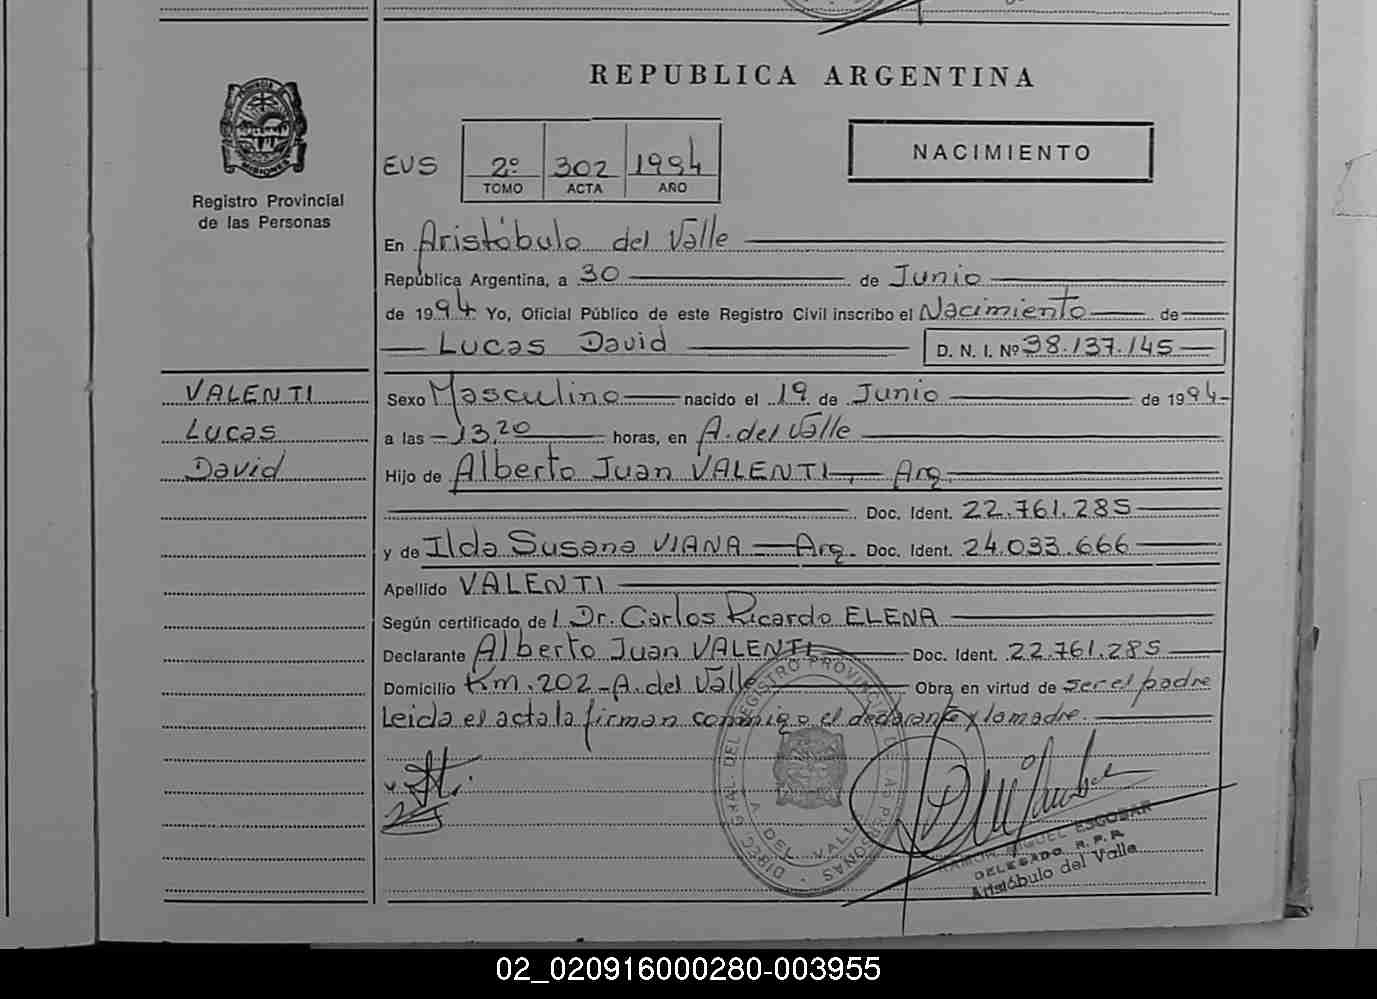 REPUBLICA ARGENTINA
PROVINCIA DE MISIONES
Registro Provincial
de las Personas
EVS 2º 302 1994
TOMO ACTA AÑO
NACIMIENTO
En Aristóbulo del Valle
República Argentina, a 30 de Junio
de 1994 Yo, Oficial Público de este Registro Civil inscribo el Nacimiento de
Lucas David D. N. I. Nº 38.137.145
VALENTI
Lucas
David
Sexo Masculino nacido el 19 de Junio de 1994
a las 13,20 horas, en A. del Valle
Hijo de Alberto Juan VALENTI, Arg.
Doc. Ident. 22.761.285
y de Ilda Susana VIANA Arg. Doc. Ident. 24.033.666
Apellido VALENTI
Según certificado de l Dr. Carlos Ricardo ELENA
Declarante Alberto Juan VALENTI Doc. Ident. 22.761.285
Domicilio Km. 202 - A. del Valle Obra en virtud de ser el padre
Leida el acta la firman conmigo el declarante y la madre.
DIREC. GRAL. DEL REGISTRO PROVINCIAL DE LAS PERSONAS
A. DEL VALLE
RAMON MIGUEL ESCOBAR
DELEGADO R. P. P.
Aristóbulo del Valle
02_020916000280-003955